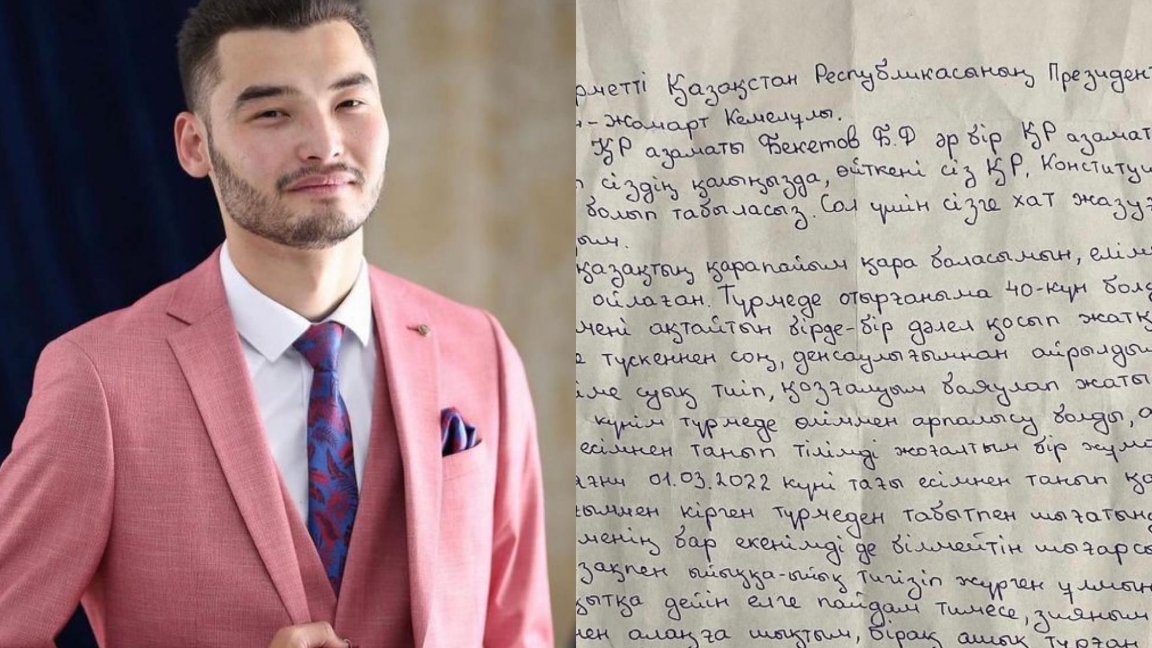 рметті Қазақстан Республикасының Президент
н-Жомарт Кемелұлы.
ҚР азаматы Бекетов Б.Д әр бір ҚР азамат
сіздің қолыңызда, өйткені сіз ҚР, Конституц
болып табыласыз. Сол үшін сізге хат жазу
ым.
қазақтың қарапайым қара баласымын, елім
ойлаған. Түрмеде отырғаныма 40-күн бол
мені ақтайтын бірде-бір дәлел қосып жатқ
түскеннен соң, денсаулығымнан айрылдым
ме суық тиіп, қозғалуым баяулап жаты
күнім түрмеде өліммен арпалысу болды, а
есімнен танып тілімді жоғалтым бір жұм
яғни 01.03.2022 күні тағы есімнен танып қа
ғыммен кірген түрмеден табытпен шығатын
менің бар екенімді де білмейтін шығарсы
зақпен ыйыққа-ыйық тигізіп жүрген ұлмын
қытқа дейін елге пайдам тимесе, зияным
ен алаңға шықтым, бірақ ашық тұрған